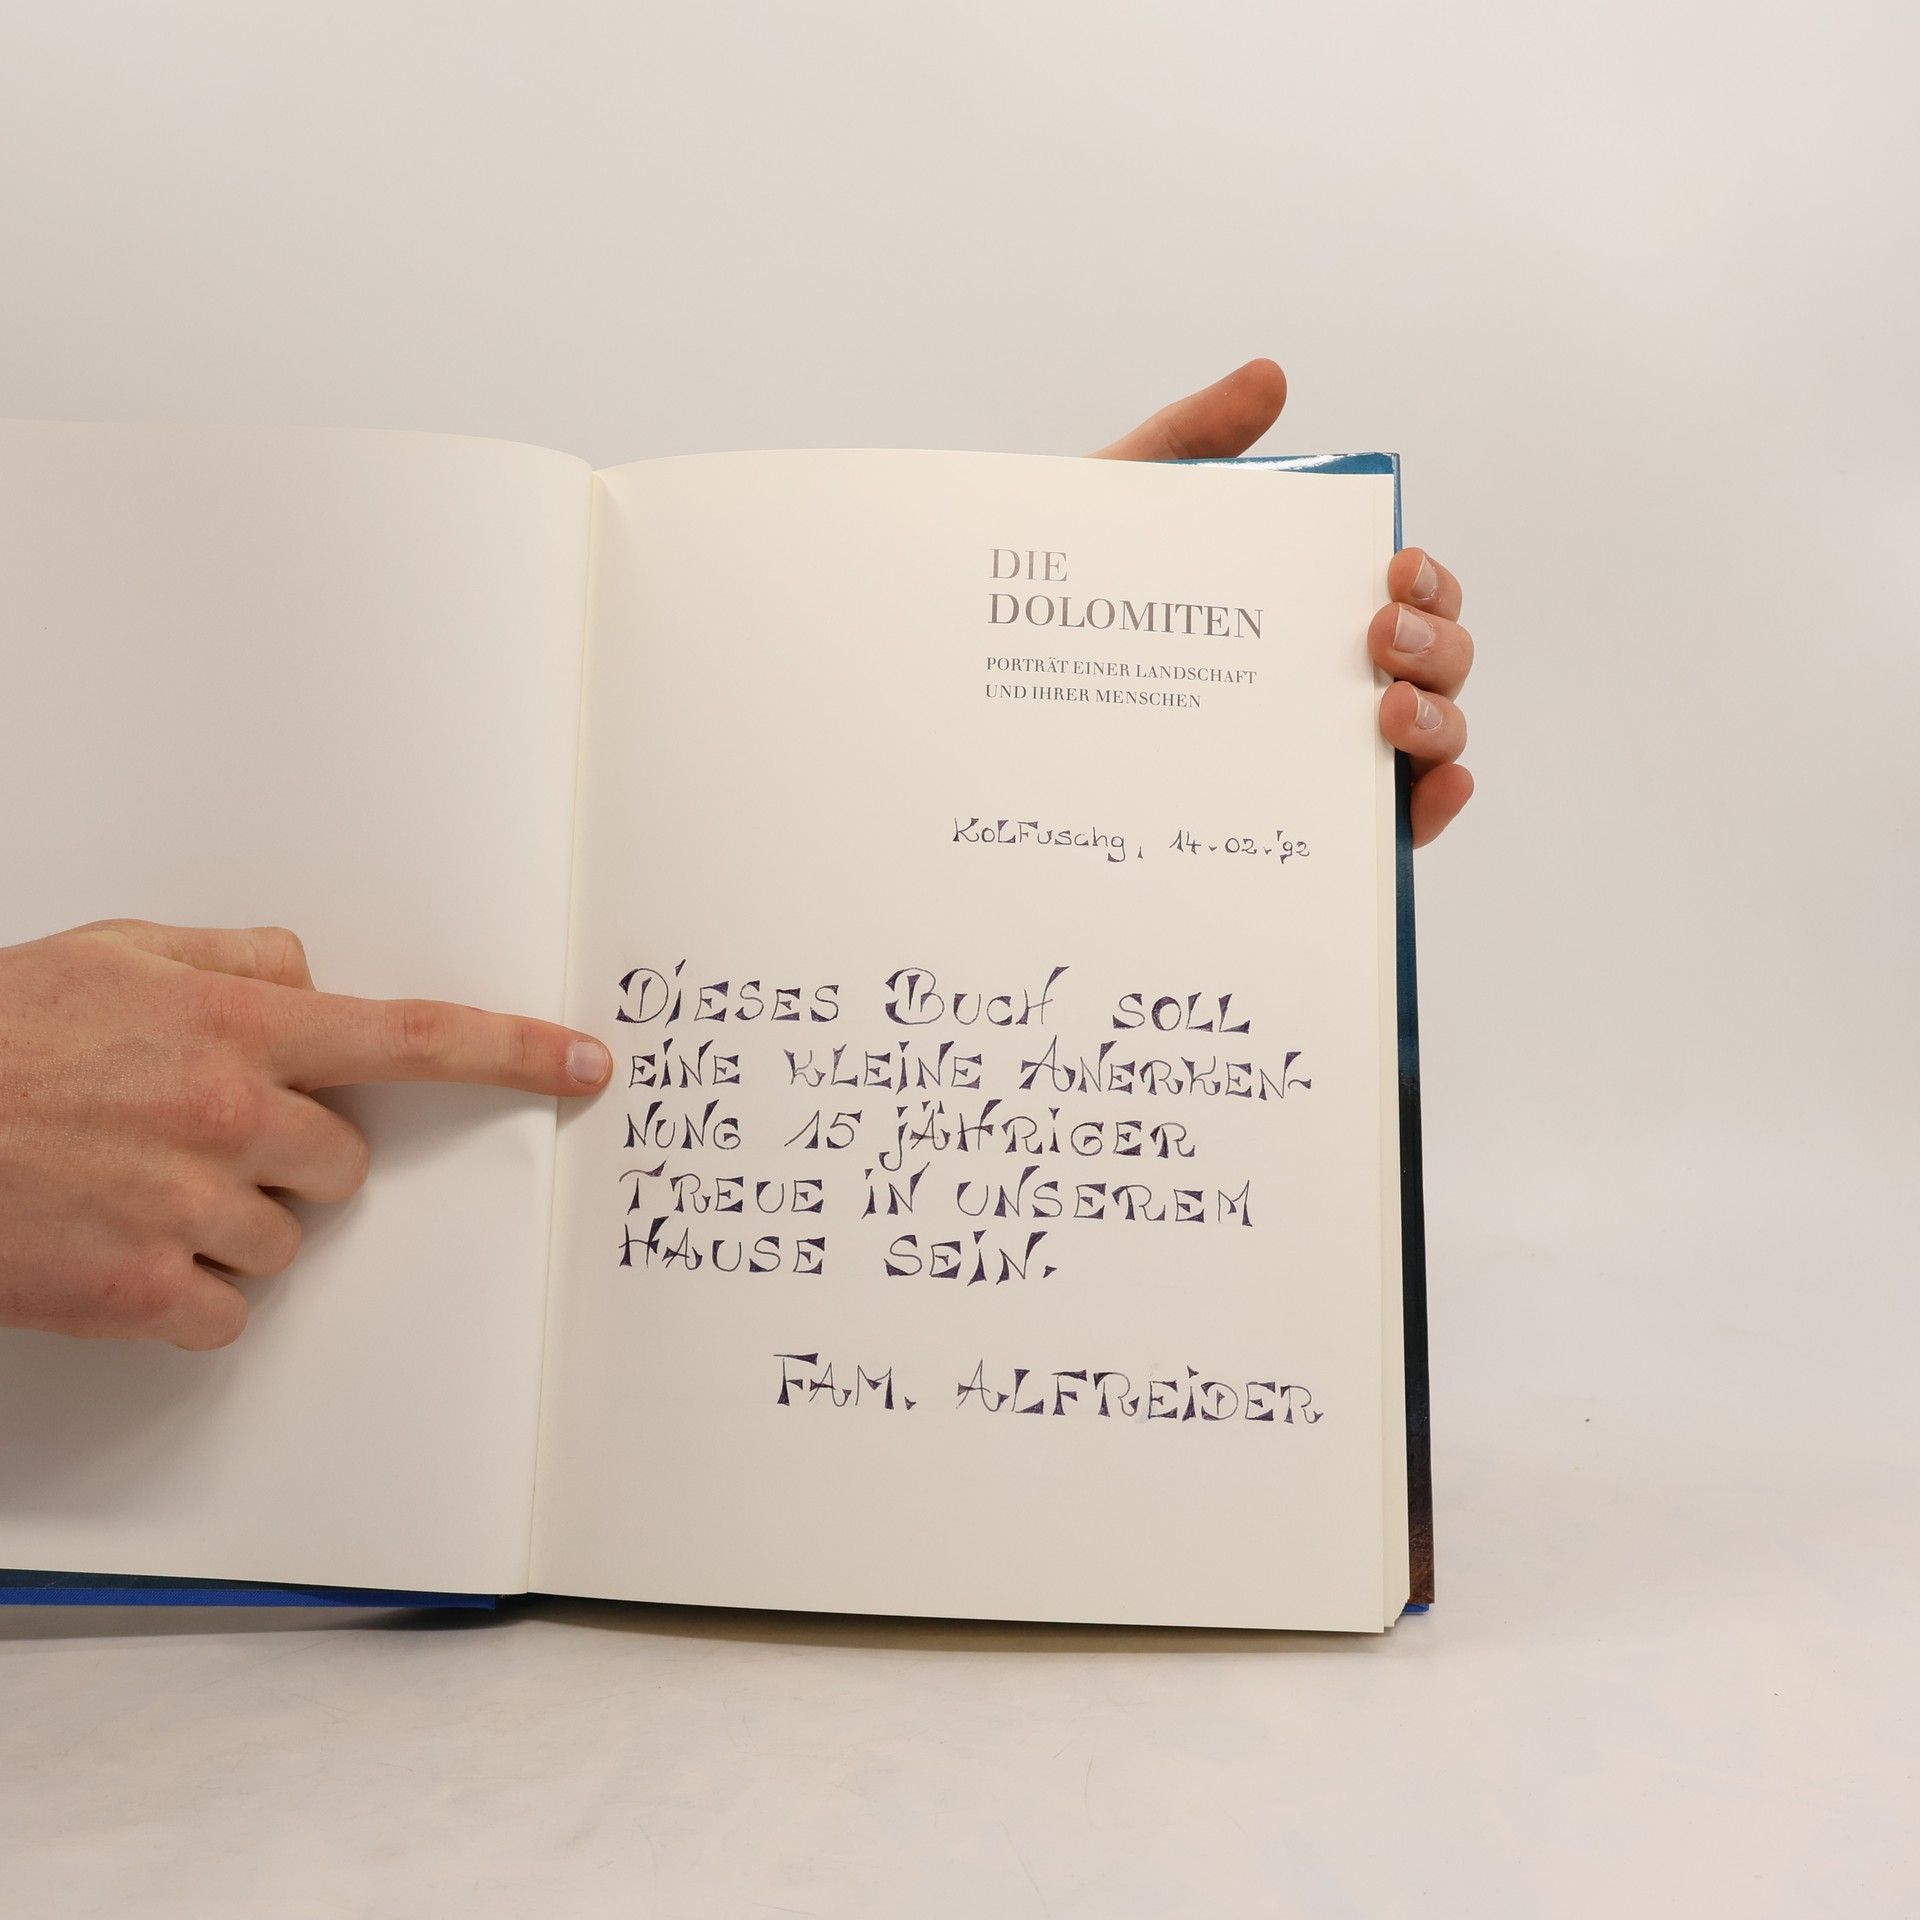 DIE
DOLOMITEN
PORTRÄT EINER LANDSCHAFT
UND IHRER MENSCHEN
KOLFuschg, 14.02.'92
DiESES BUCH SOLL
EiNE KLEiNE ANERKEN-
NUNG 15 jÄHRiGER
TREUE iN UNSEREM
HAUSE SEiN.
FAM. ALFREiDER